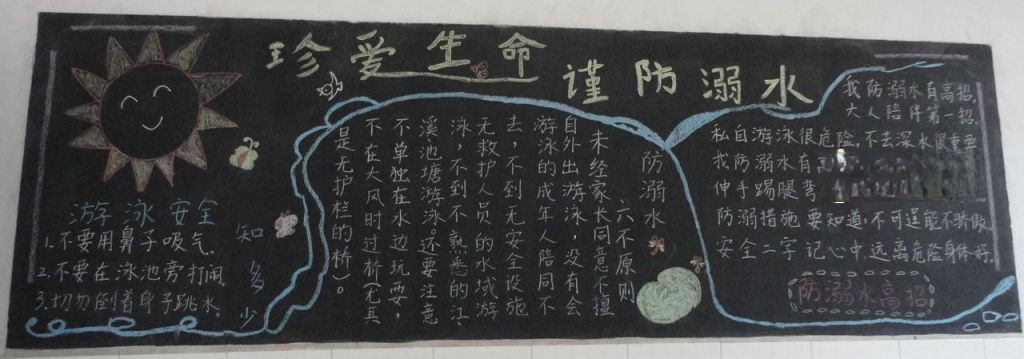 珍爱生命
谨防溺水
游泳安全
知多少
1.不要用鼻子吸气.
2.不要在泳池旁打闹
3.切勿倒着身子跳水.
防溺水
六不原则
未经家长同意不擅
自外出游泳,没有会
游泳的成年人陪同不
去,不到无安全设施
无救护人员的水域游
泳,不到不熟悉的江、
溪池塘游泳。还要注意
不单独在水边玩耍,
不在大风时过桥(尤其
是无护栏的桥)。
我防溺水有高招,
大人陪伴第一招.
私自游泳很危险,不去深水很重要
我防溺水有高
伸手踢腿弯
防溺措施要知道,不可逞能不骄傲.
安全二字记心中,远离危险身体好.
防溺水高招